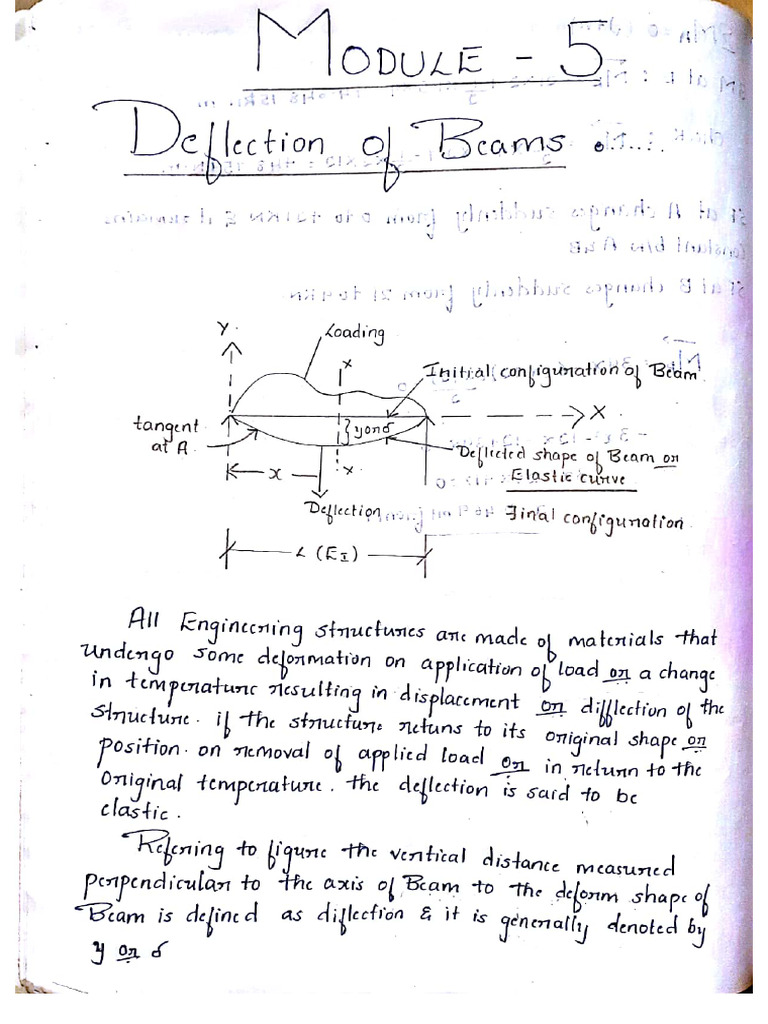 MODULE - 5
Deflection of Beams.
Y.
Loading
x
Initial configuration of Beam
X.
tangent
at A.
y or δ
Deflected shape of Beam or
Elastic curve
x
x.
Deflection
Final configuration.
L (EI)
All Engineering structures are made of materials that
undergo some deformation on application of load or a change
in temperature resulting in displacement or difflection of the
structure. if the structure retuns to its original shape or
position. on removal of applied load or in return to the
original temperature. the deflection is said to be
elastic.
Refering to figure the vertical distance measured
perpendicular to the axis of Beam to the deform shape of
Beam is defined as diflection & it is generally denoted by
y or δ